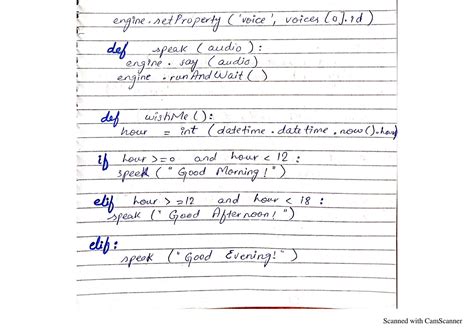 engine.setProperty('voice', voices[0].id)
def speak (audio):
engine.say (audio)
engine.runAndWait()
def wishMe():
hour = int (datetime.datetime.now().hour
if hour >=0 and hour < 12 :
speek ("Good Morning!")
elif hour >=12 and hour < 18 :
speak ("Good Afternoon!")
elif:
speak ("Good Evening!")
Scanned with CamScanner